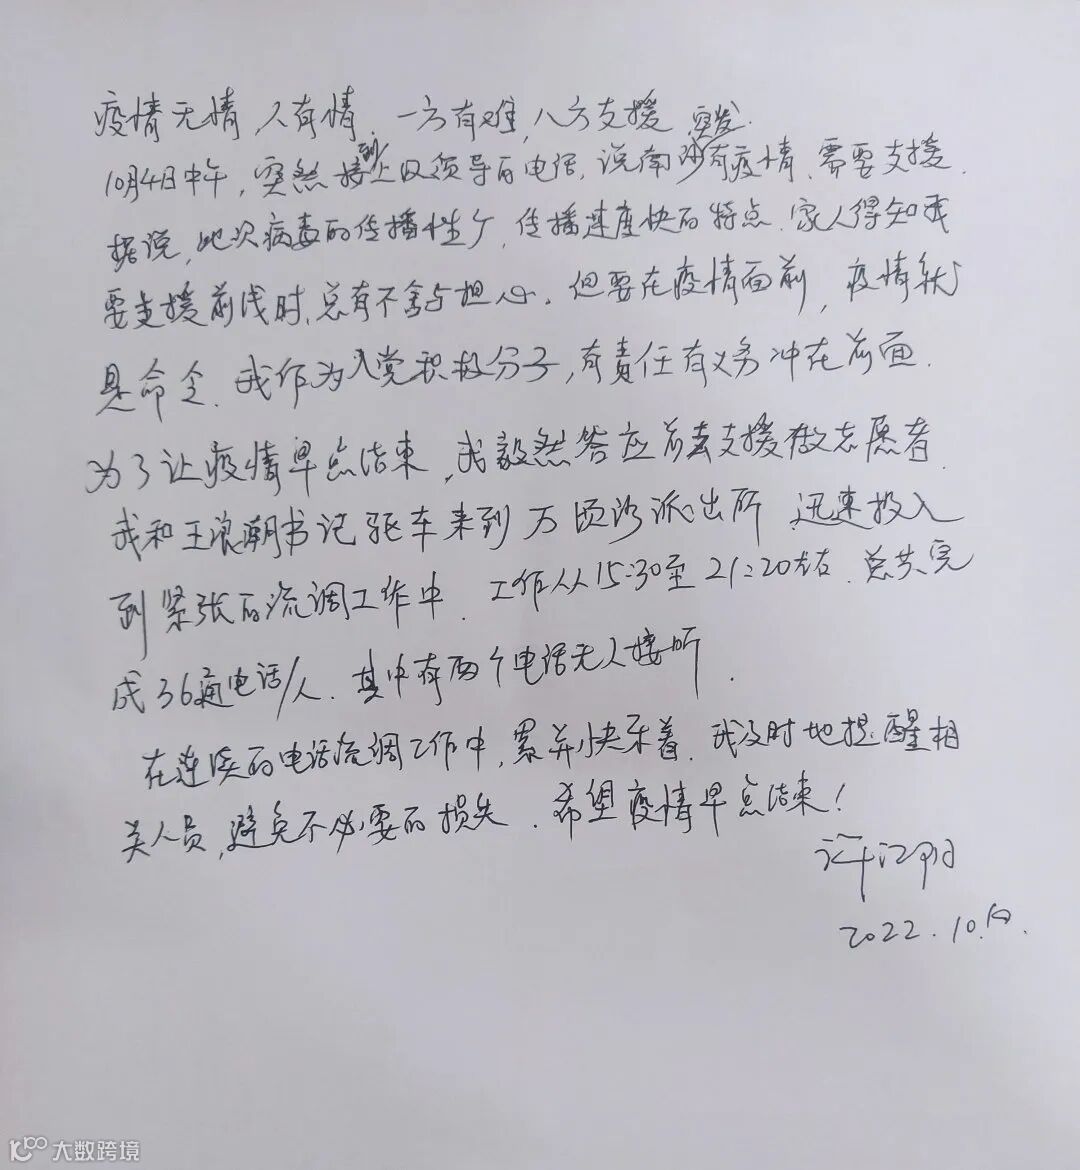 疫情无情,人有情,一方有难,八方支援.
10月4日中午,突然接到上级领导的电话,说南沙突发有疫情、需要支援.
据说,此次病毒的传播性广,传播速度快的特点.家人得知我
要支援前线时,总有不舍与担心.但要在疫情面前,疫情就
是命令.我作为入党积极分子,有责任有义务冲在前面.
为了让疫情早点结束,我毅然答应前去支援做志愿者.
我和王浪潮书记驱车来到万顷沙派出所 迅速投入
到紧张的流调工作中.工作从15:30至21:20左右.总共完
成36通电话/人.其中有两个电话无人接听.
在连续的电话流调工作中,累并快乐着.我及时地提醒相
关人员,避免不必要的损失.希望疫情早点结束!
许江阳
2022.10.
大数跨境